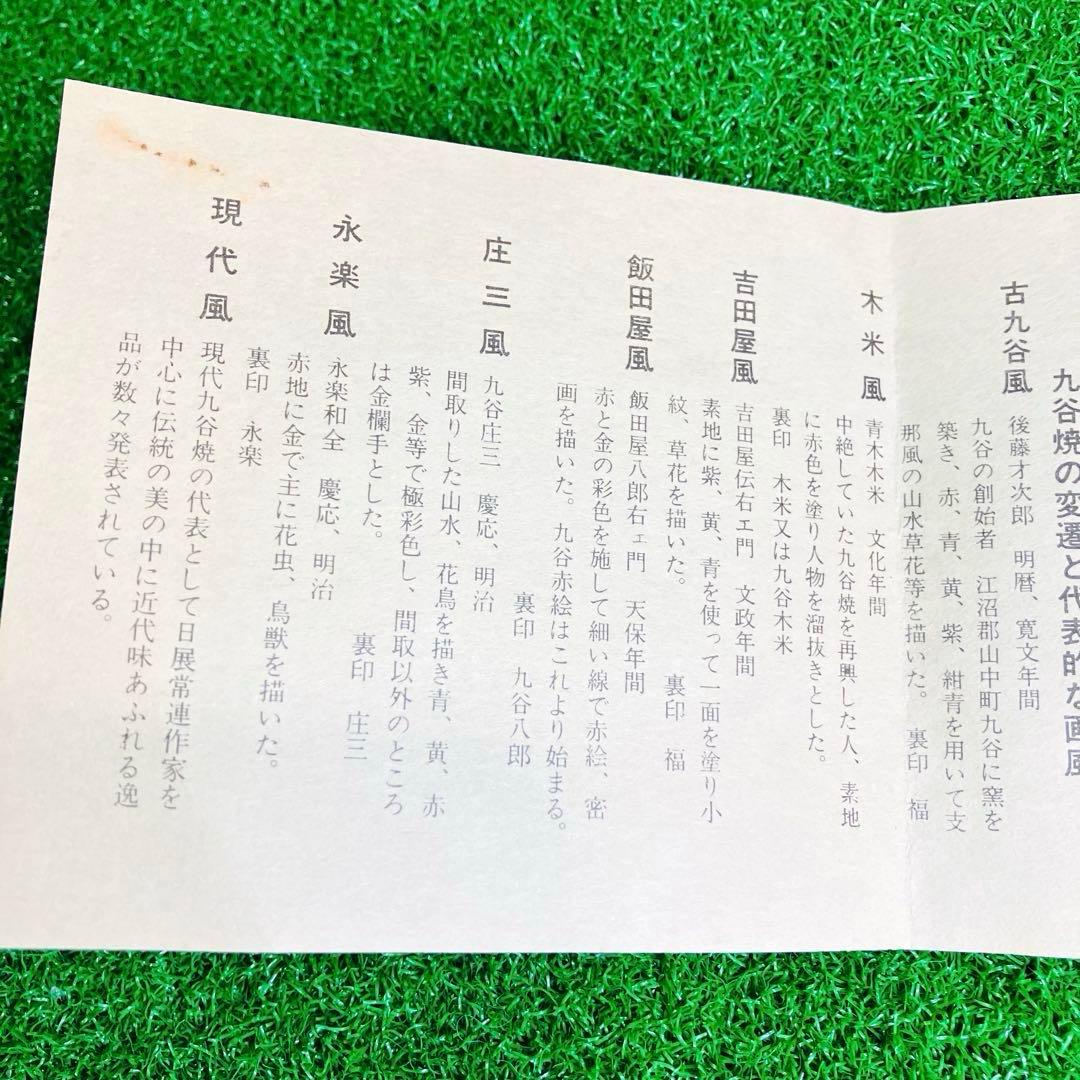 九谷焼の変遷と代表的な画風
古九谷風
後藤才次郎 明暦、寛文年間
九谷の創始者 江沼郡山中町九谷に窯を
築き、赤、青、黄、紫、紺青を用いて支
那風の山水草花等を描いた。 裏印 福
木米風
青木木米 文化年間
中絶していた九谷焼を再興した人、素地
に赤色を塗り人物を溜抜きとした。
裏印 木米又は九谷木米
吉田屋風
吉田屋伝右エ門 文政年間
素地に紫、黄、青を使って一面を塗り小
紋、草花を描いた。 裏印 福
飯田屋風
飯田屋八郎右ェ門 天保年間
赤と金の彩色を施して細い線で赤絵、密
画を描いた。九谷赤絵はこれより始まる。
裏印 九谷八郎
庄三風
九谷庄三 慶応、明治
間取りした山水、花鳥を描き青、黄、赤
紫、金等で極彩色し、間取以外のところ
は金襴手とした。 裏印 庄三
永楽風
永楽和全 慶応、明治
赤地に金で主に花虫、鳥獣を描いた。
裏印 永楽
現代風
現代九谷焼の代表として日展常連作家を
中心に伝統の美の中に近代味あふれる逸
品が数々発表されている。